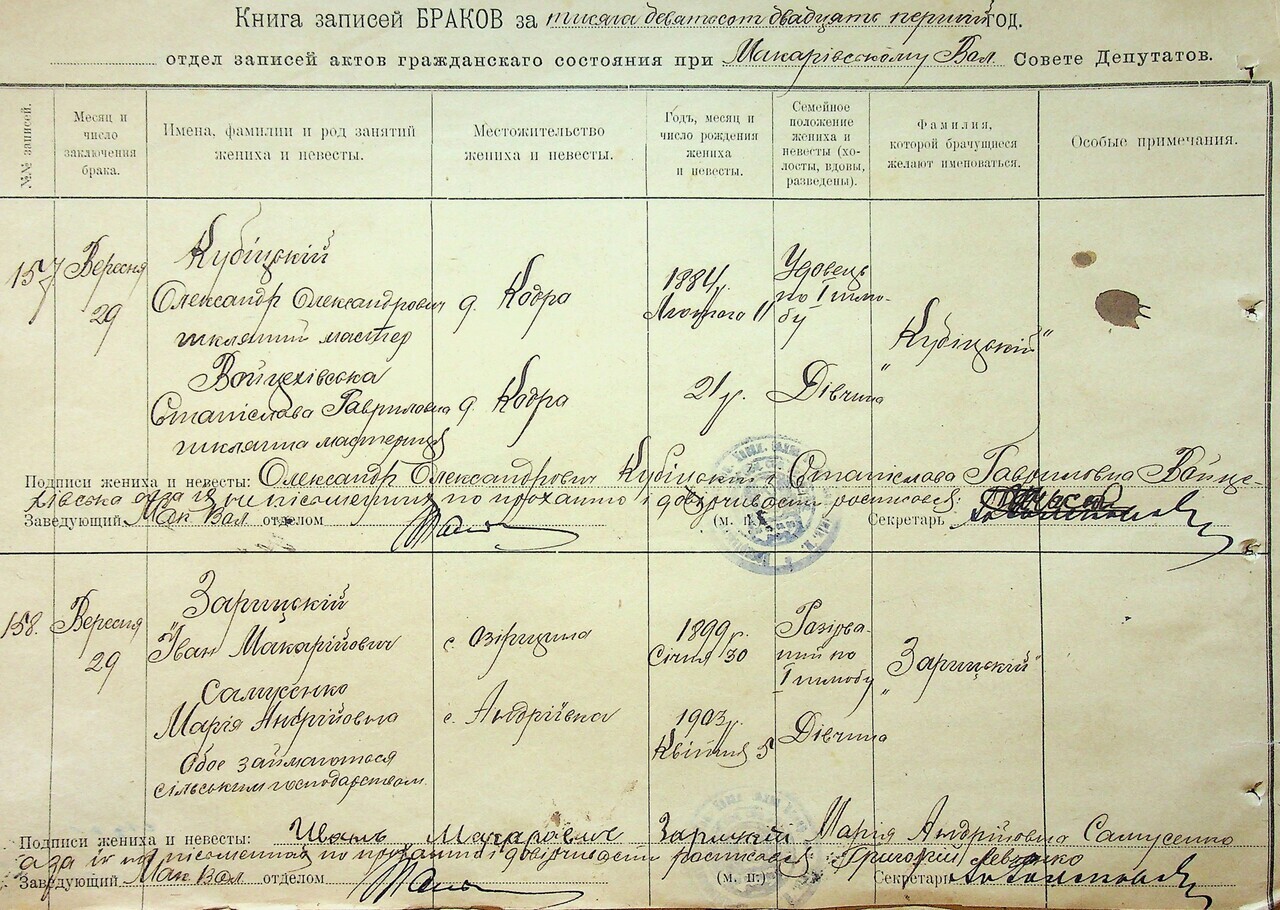 Книга записей БРАКОВ за тисяча девятьсот двадцать первий год.
отдел записей актов гражданскаго состояния при Макарівському Вол. Совете Депутатов.
№№ записей.
Месяц и число заключения брака.
Имена, фамилии и род занятий жениха и невесты.
Местожительство жениха и невесты.
Годъ, месяц и число рождения жениха и невесты.
Семейное положение жениха и невесты (холосты, вдовы, разведены).
Фамилия, которой брачущиеся желают именоваться.
Особые примечания.
157 Вересня 29
Кубіцкій
Олександр Олександрович
шкляний мастер
д. Кодра
1884 р.
Лютого 11
Удовець
по І шлюбу
„Кубіцкій"
Войцехівська
Станіслава Гавриловна
шкляна мастериця
д. Кодра
21 р.
Дівчина
Подписи жениха и невесты: Олександр Олександрович Кубіцкий Станіслава Гавриловна Войцехівська
а за їх неписьменних по проханню і довірчивасти росписався:
Заведующий Мак Вол отделом (м. п.) Секретарь
158. Вересня 29
Зарицкій
Іван Макарійович
с. Озірщина
1899 р.
Січня 30
Разірваний по
І шлюбу
„Зарицкій"
Самусенко
Марія Андрійовна
с. Андріївка
1903 р.
Квітня 5
Дівчина
Обое займаются
сільським господарством.
Подписи жениха и невесты: Иванъ Макарович Зарицкій Марія Андрійовна Самусенко
а за їі неписьменной по проханню і довірчивасти росписався: Григорій Левченко
Заведующий Мак Вол отделом (м. п.) Секретарь